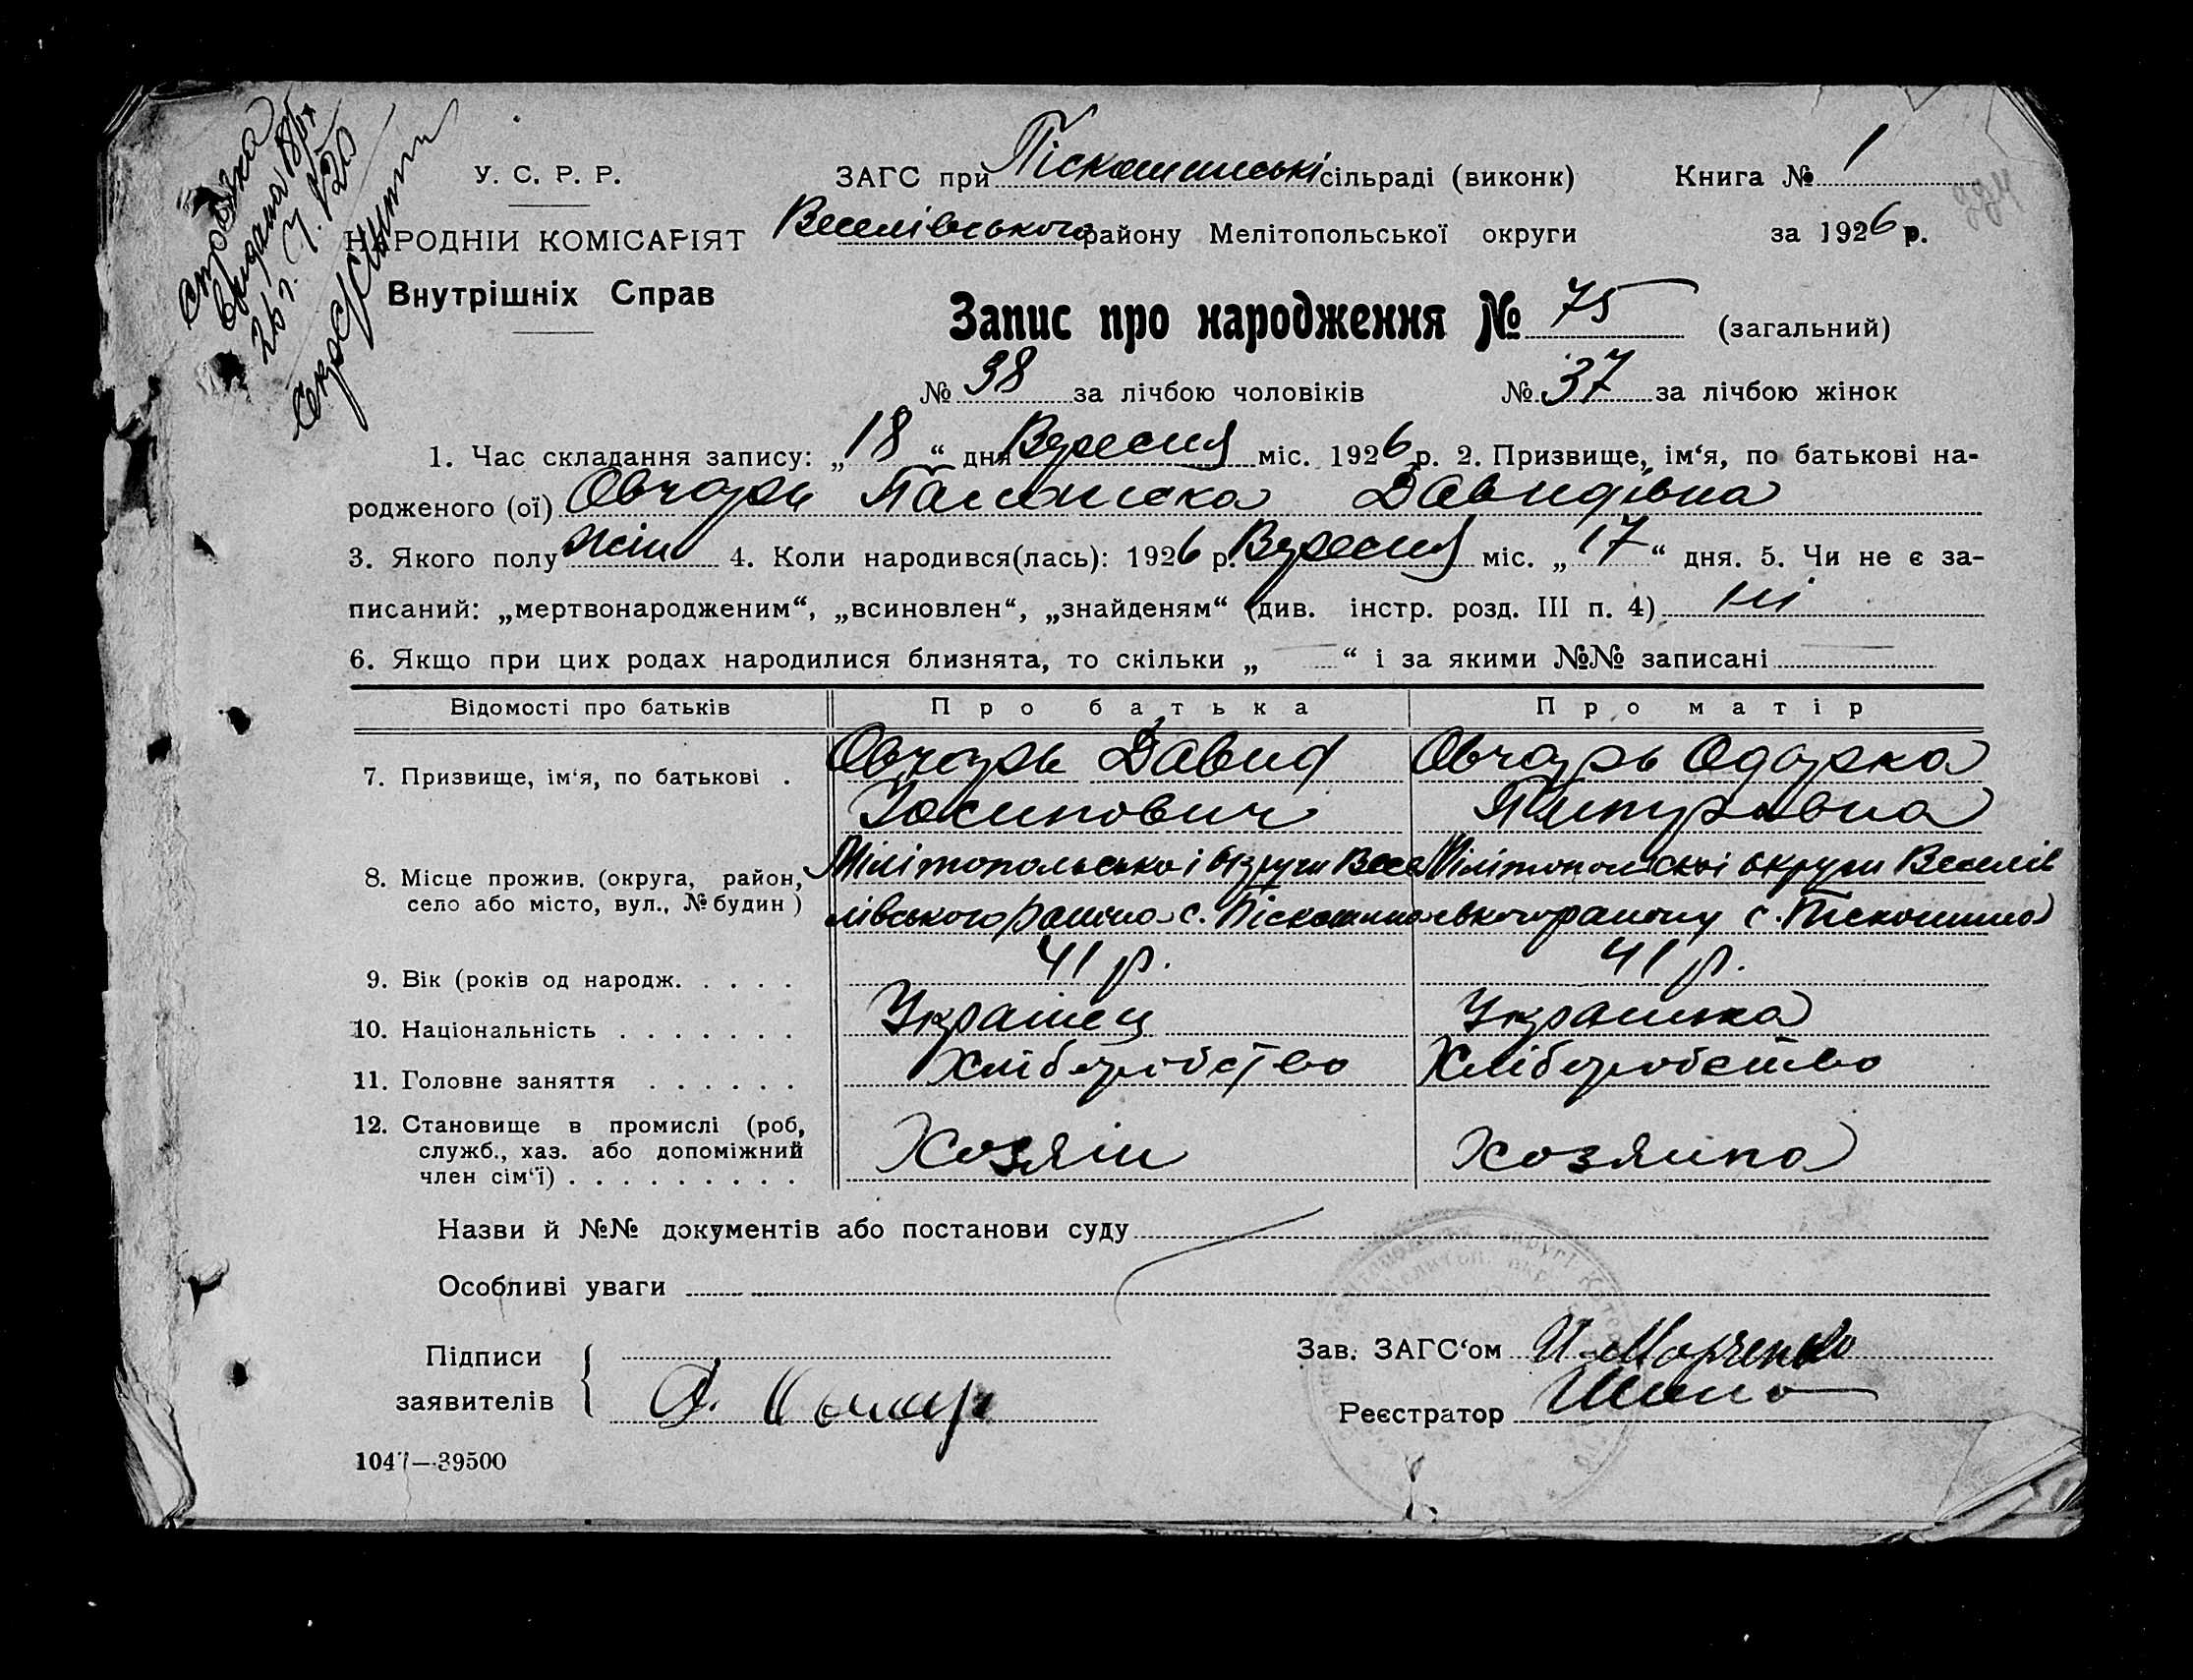 Справка
видана 18/IX
26 р.
У. С. Р. Р.
НАРОДНІЙ КОМІСАРІЯТ
Внутрішніх Справ
ЗАГС при Піскошинські сільраді (виконк)
Книга № 1
Веселівського району Мелітопольської округи
за 1926 р.
Запис про народження № 75 (загальний)
№ 38 за лічбою чоловіків № 37 за лічбою жінок
1. Час складання запису: „18“ дня Вересня міс. 1926 р. 2. Призвище, ім‘я, по батькові на-
родженого (ої) Овчарь Давидівна
3. Якого полу жін 4. Коли народився(лась): 1926 р. Вересня міс. „17“ дня. 5. Чи не є за-
писаний: „мертвонародженим“, „всиновлен“, „знайденям“ (див. інстр. розд. III п. 4) ні
6. Якщо при цих родах народилися близнята, то скільки „ “ і за якими №№ записані
Відомості про батьків Про батька Про матір
7. Призвище, ім‘я, по батькові . Овчарь Давид Овчарь Одарка
Йосипович
8. Місце прожив. (округа, район, Мілітопольської округи Весе Мілітопольскої округи Веселів
село або місто, вул., № будин) лівського району с. Піскошино ського району с. Піскошино
9. Вік (років од народж. . . . . 41 р. 41 р.
10. Національність . . . . . . . Українец Українка
11. Головне заняття . . . . . . Хліборобство Хліборобство
12. Становище в промислі (роб,
служб., хаз. або допоміжний Хозяін Хозяіна
член сім‘ї) . . . . . . . . .
Назви й №№ документів або постанови суду
Особливі уваги
Підписи
заявителів
Д. Овчар
Зав. ЗАГС‘ом И. Марченко
Реєстратор
1047—39500